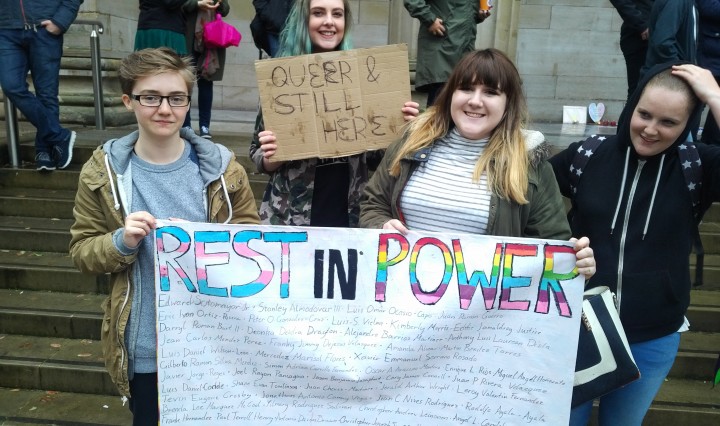 QUEER &
STILL
HERE
REST IN POWER
Edward Sotomayor Jr - Stanley Almodovar III - Luis Omar Ocasio-Capo - Juan Ramon Guerrero
Eric Ivan Ortiz-Rivera - Peter O Gonzalez-Cruz - Luis S Vielma - Kimberly Morris - Eddie Jamoldroy Justice
Darryl Roman Burt II - Deonka Deidra Drayton - Alejandro Barrios Martinez - Anthony Luis Laureano Disla
Jean Carlos Mendez Perez - Franky Jimmy Dejesus Velazquez - Martin Benitez Torres
Luis Daniel Wilson-Leon - Mercedez Marisol Flores - Xavier Emmanuel Serrano Rosado
Gilberto Ramon Silva Enrique L Rios - Miguel Angel Honorato
Javier Jorge Reyes - Joel Rayon Paniagua - Juan P Rivera Velazquez
Luis Daniel Conde - Shane Evan Tomlinson - Juan Wright - Leroy Valentin Fernandez
Tevin Eugene Crosby - Jonathan Antonio Camuy Vega - Jean C Nives Rodriguez - Rodolfo Ayala-Ayala
Brenda Lee Marquez McCool - Yilmary Rodriguez Sulivan - Christopher Andrew Leinonen - Angel L
Frank Hernandez - Paul Terrell Henry - Antonio Davon Brown - Christopher Joseph